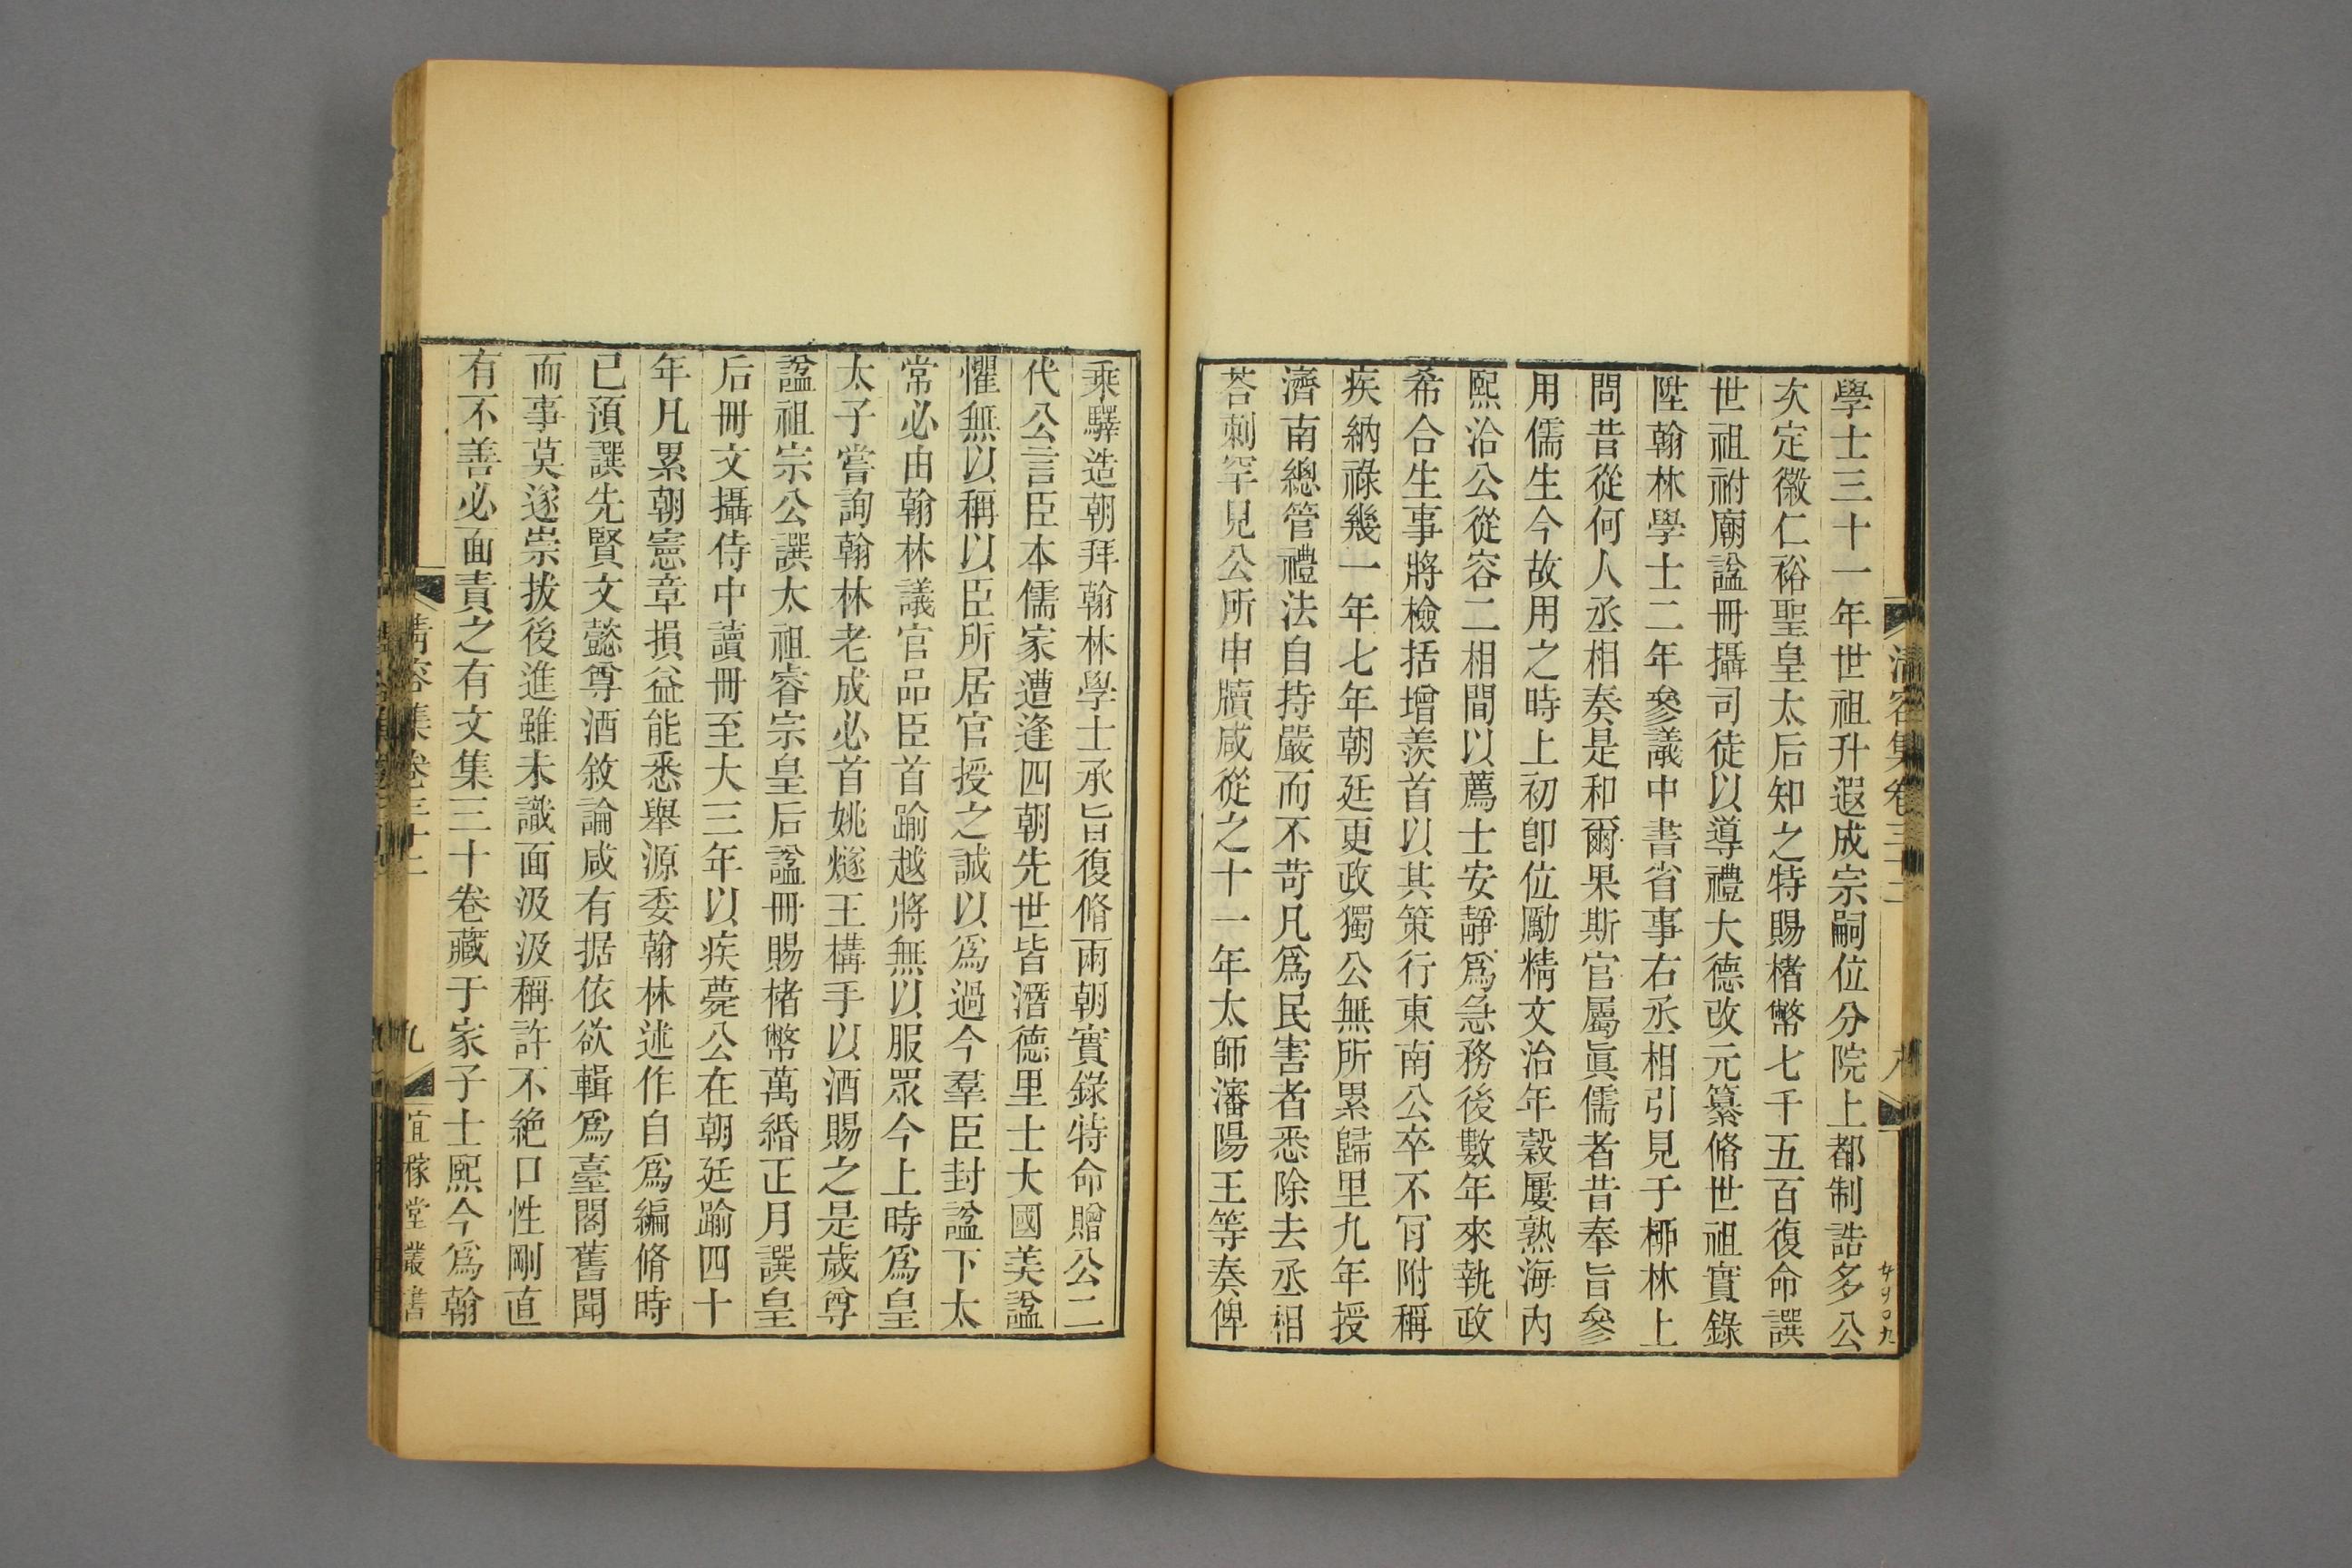 清容集卷三十二
學士三十一年世祖升遐成宗嗣位分院上都制誥多公
次定徽仁裕聖皇太后知之特賜楮幣七千五百復命譔
世祖祔廟諡冊攝司徒以導禮大德改元纂脩世祖實錄
陞翰林學士二年參議中書省事右丞相引見于栁林上
問昔從何人丞相奏是和爾果斯官屬眞儒者昔奉旨參
用儒生今故用之時上初卽位勵精文治年穀屢熟海內
熙洽公從容二相間以薦士安靜爲急務後數年來執政
希合生事將檢括增羨首以其策行東南公卒不肎附稱
疾納祿幾一年七年朝廷更政獨公無所累歸里九年授
濟南總管禮法自持嚴而不苛凡爲民害者悉除去丞相
荅剌罕見公所申牘咸從之十一年太師瀋陽王等奏俾
乘驛造朝拜翰林學士承旨復脩兩朝實錄特命贈公二
代公言臣本儒家遭逢四朝先世皆潛德里士大國美諡
懼無以稱以臣所居官授之誠以爲過今羣臣封諡下太
常必由翰林議官品臣首踰越將無以服眾今上時爲皇
太子嘗詢翰林老成必首姚燧王構手以酒賜之是歲尊
諡祖宗公譔太祖睿宗皇后諡冊賜楮幣萬緡正月譔皇
后冊文攝侍中讀冊至大三年以疾薨公在朝廷踰四十
年凡累朝憲章損益能悉舉源委翰林述作自爲編脩時
已預譔先賢文懿尊酒敘論咸有据依欲輯爲臺閣舊聞
而事莫遂崇拔後進雖未識面汲汲稱許不絕口性剛直
有不善必面責之有文集三十卷藏于家子士熙今爲翰
清容集卷三十二
九
宜稼堂叢書